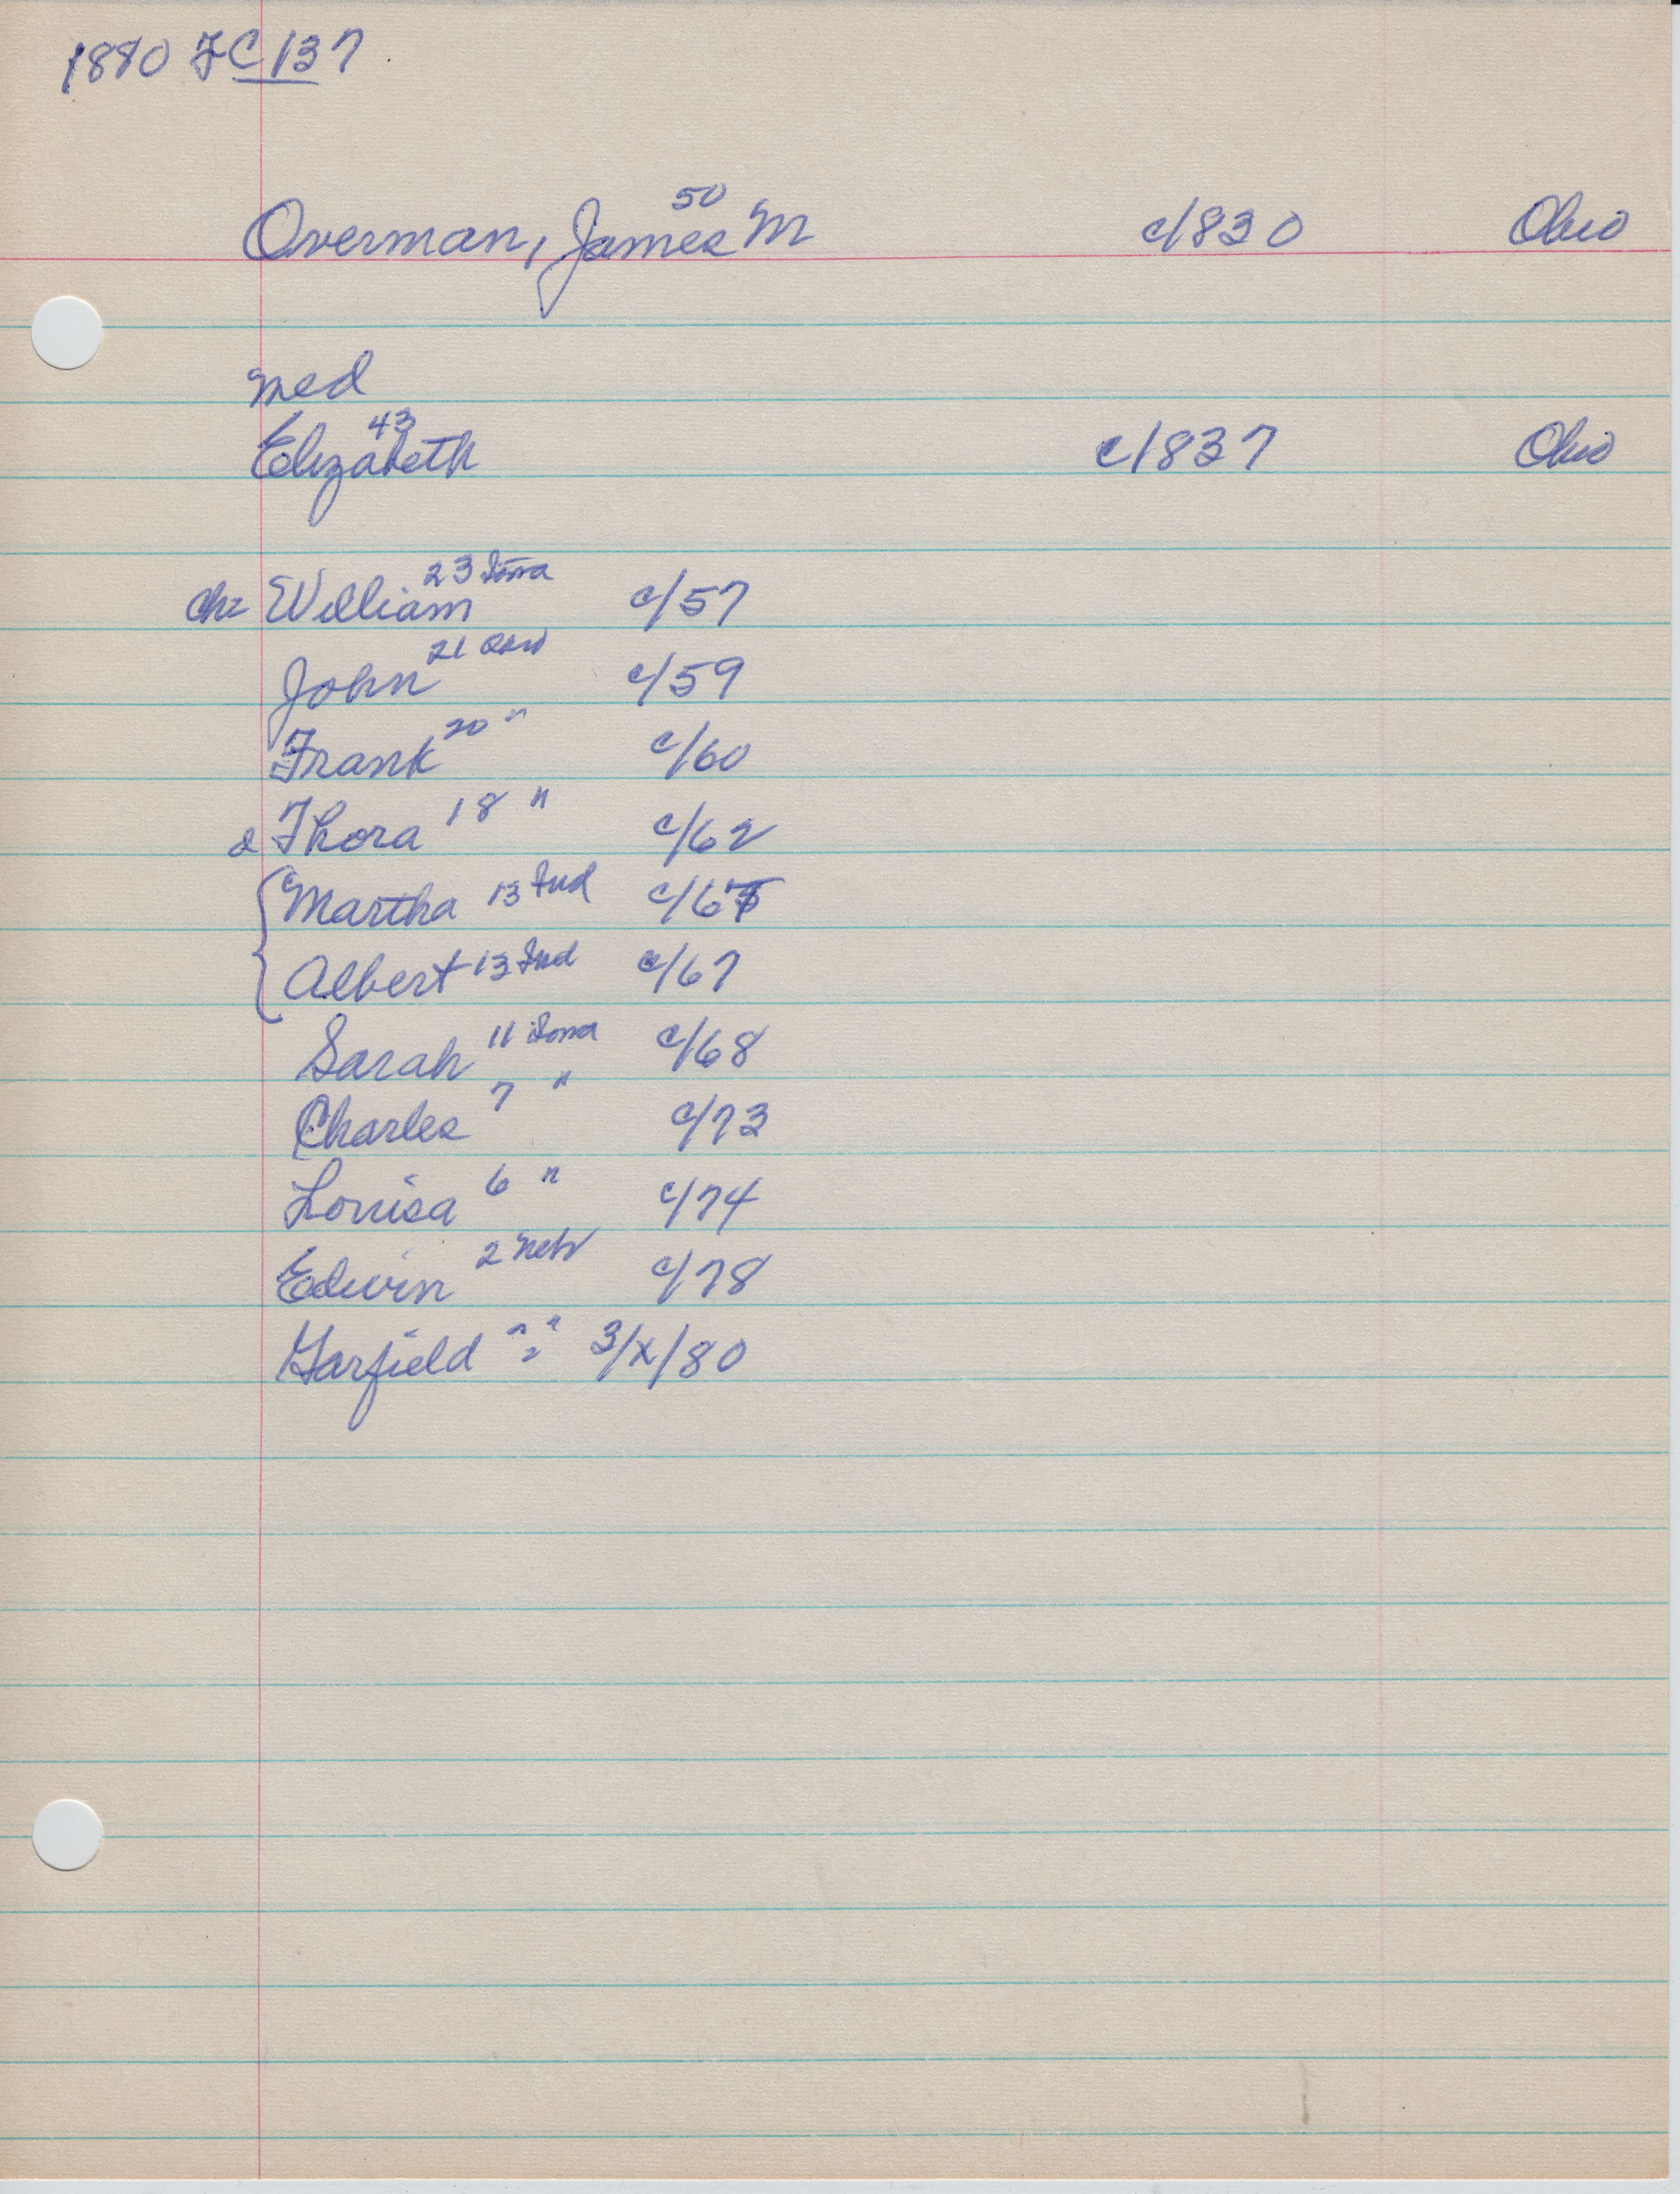 1880 FC 137
50
Overman, James M c/1830 Ohio
med
43
Elizabeth c/1837 Ohio
ch= William 23 Iowa c/57
John 21 Ohio c/59
Frank 20 " c/60
d Thora 18 " c/62
Martha 13 Ind c/67
Albert 13 Ind c/67
Sarah 11 Iowa c/68
Charles 7 " c/73
Louisa 6 " c/74
Edwin 2 Neb c/78
Garfield " " 3/x/80